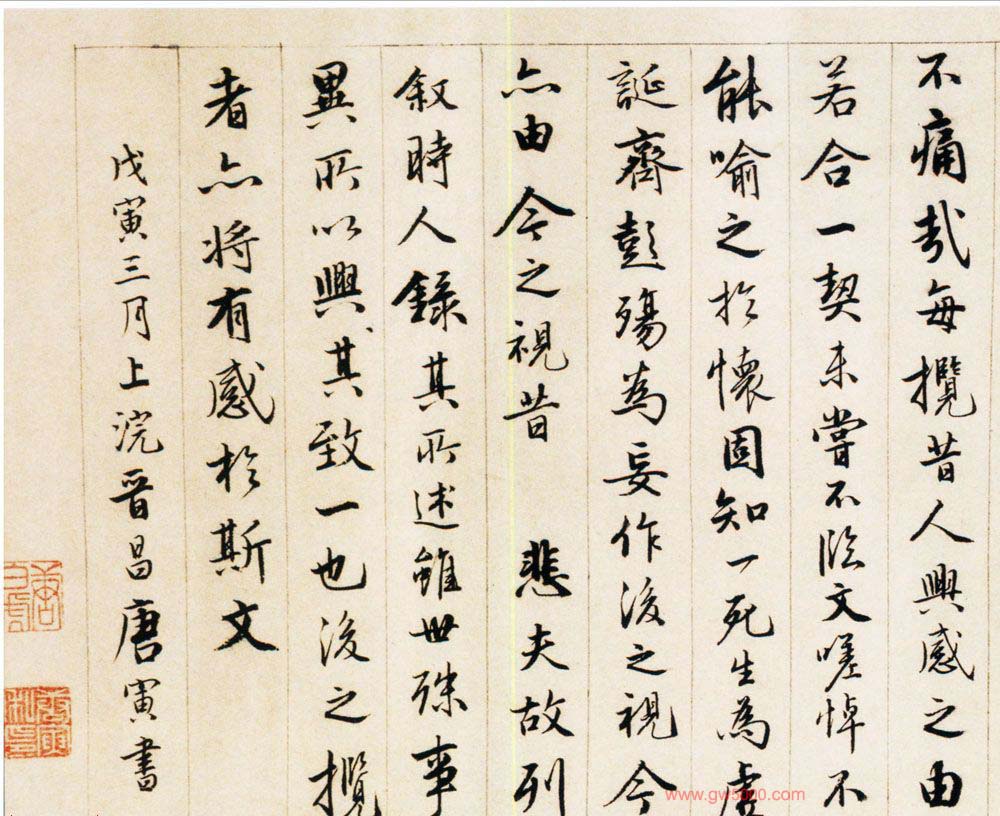 不痛哉每攬昔人興感之由
若合一契未嘗不臨文嗟悼不
能喻之於懷固知一死生為虛
誕齊彭殤為妄作後之視今
亦由今之視昔 悲夫故列
叙時人錄其所述雖世殊事
異所以興其致一也後之攬
者亦將有感於斯文
戊寅三月上浣晉昌唐寅書
www.gw5000.com